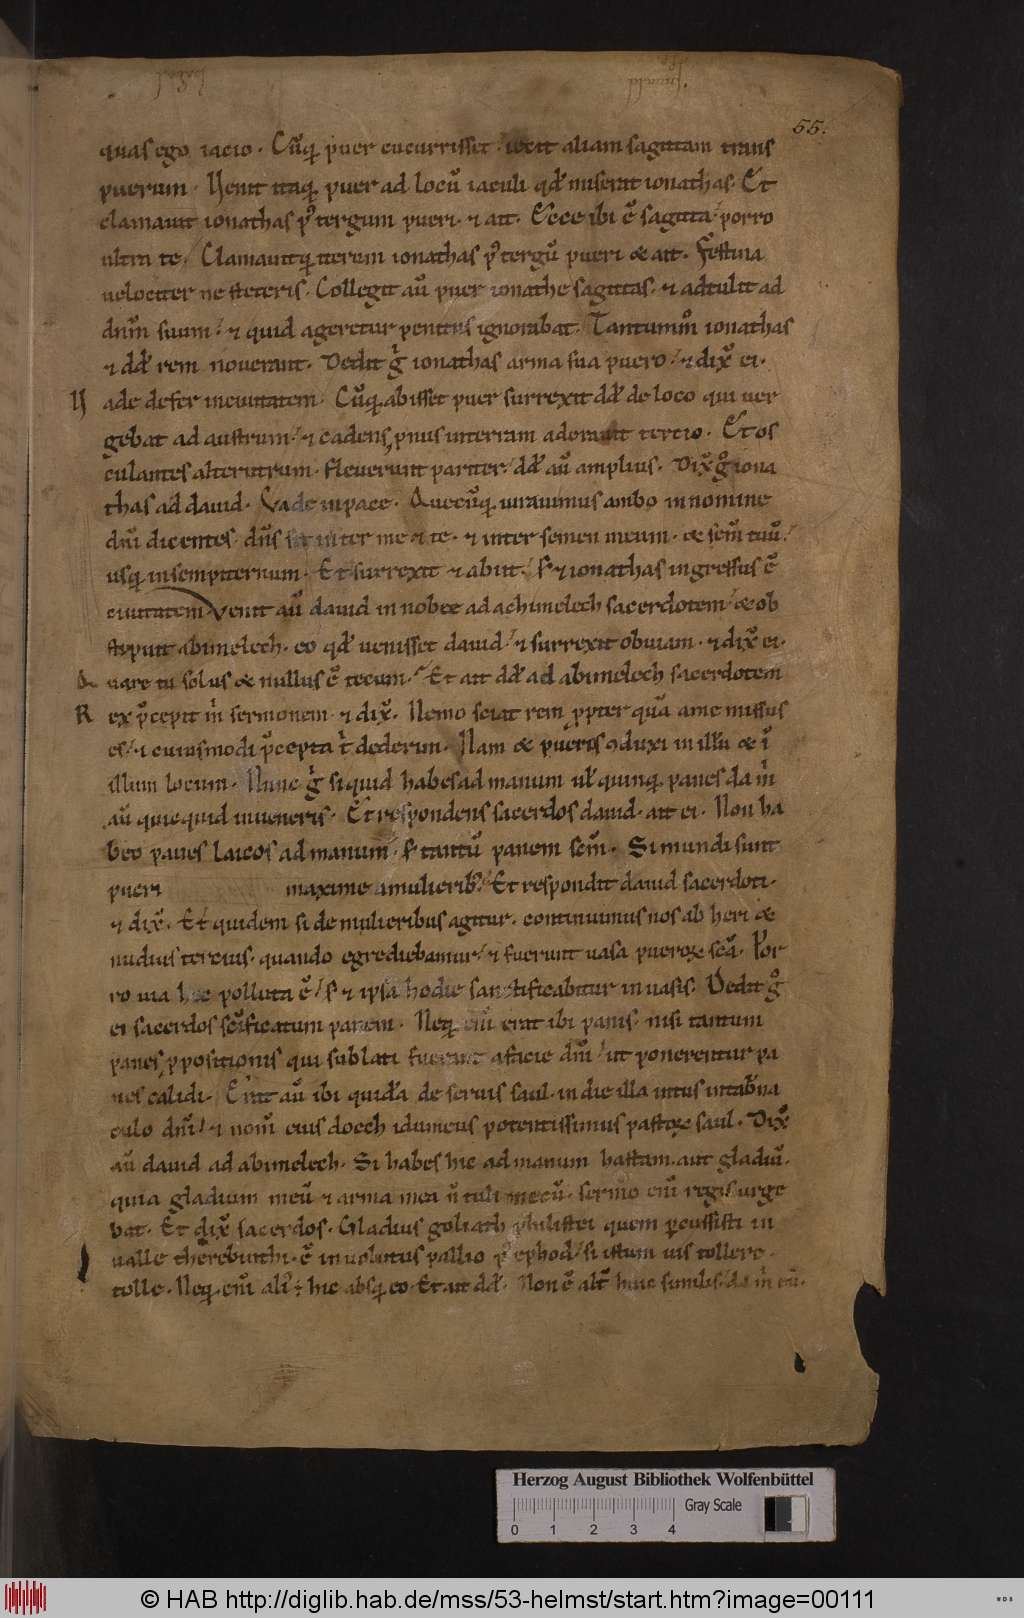 55.
quas ego iacio. Cu̅q; puer cucurrisset iecit aliam sagittam trans
puerum. Uenit itaq; puer ad locu̅ iaculi qd̅ miserat ionathas. Et
clamauit ionathas p᷒ tergum pueri. ⁊ ait. Ecce ibi e̅ sagitta porro
ultra te. Clamauitq; iterum ionathas p᷒ tergu̅ pueri & ait. Festina
uelociter ne steteris. Collegit au̅ puer ionathe sagittas. ⁊ adtulit ad
dn̅m suum. ⁊ quid ageretur penitus ignorabat. Tantumm̊ ionathas
⁊ dd̅ rem nouerant. Dedit g̊ ionathas arma sua puero. ⁊ dix̅ ei.
U ade defer in ciuitatem. Cu̅q; abisset puer surrexit dd̅ de loco qui uer
gebat ad austrum. ⁊ cadens pnus in terram adorauit tertio. Et os
culantes alterutrum. fleuerunt pariter. dd̅ au̅ amplius. Dix̅ g̊ iona
thas ad dauid. Vade in pace. Quecu̅q; iurauimus ambo in nomine
dn̅i dicentes. dn̅s sit inter me et te. ⁊ inter semen meum. & sem̅ tuu̅.
usq; in sempiternum. Et surrexit ⁊ abiit. s; ⁊ ionathas ingressus e̅
ciuitatem Venit au̅ dauid in nobee ad achimelech sacerdotem. & ob
stupuit abimelech. eo qd̅ uenisset dauid. ⁊ surrexit obuiam. ⁊ dix̅ ei.
Q uare tu solus & nullus e̅ tecum. Et ait dd̅ ad abimelech sacerdotem
R ex p̅cepit m̊ sermonem. ⁊ dix̅. Nemo sciat rem ppter qua̅ a me missus
es. ⁊ cuiusmodi p̅cepta t̊ dederim. Nam & pueris 9duxi in illu̅ & i̅
illum locum. Nunc g̊ si quid habes ad manum ul̅ quinq; panes da m̊
au̅ quicquid inueneris. Et respondens sacerdos dauid. ait ei. Non ha
beo panes laicos ad manum. s; tantu̅ panem scm̅. Si mundi sunt
pueri maxime a mulierib;. Et respondit dauid sacerdoti.
⁊ dix̅. Et quidem si de mulieribus agitur. continuimus nos ab heri &
nudius tercius. quando egrediebamur. ⁊ fuerunt uasa pueroꝝ sca̅. Por
ro uia hec polluta e̅. s; ⁊ ipsa hodie sanctificabitur in uasis. Dedit g̊
ei sacerdos sc̅ificatum panem. Neq; eni̅ erat ibi panis. nisi tantum
panes ppositionis qui sublati fuerant a facie dn̅i. ut ponerentur pa
nes calidi. Erat au̅ ibi quida̅ de seruis saul. in die illa intus in tab̅na
culo dn̅i. ⁊ nom̅ eius doech idumeus potentissimus pastoꝝ saul. Dix̅
au̅ dauid ad abimelech. Si habes hic ad manum hastam. aut gladiu̅.
quia gladium meu̅ ⁊ arma mea n̅ tuli mecu̅. sermo eni̅ regis urge
bat. Et dix̅ sacerdos. Gladius goliath philistei quem p̱cussisti in
ualle therebinthi. e̅ inuolutus pallio p᷒ ephod. si istum uis tollere.
tolle. Neq; eni̅ ali᷒ ÷ hic absq; eo. Et ait dd̅. Non e̅ alt̅ huic similis. da m̊ eu̅.
Herzog August Bibliothek Wolfenbüttel
Gray Scale
0 1 2 3 4
© HAB http://diglib.hab.de/mss/53-helmst/start.htm?image=00111